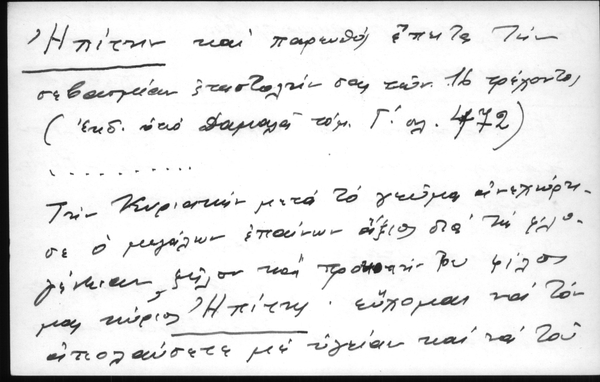 Ἠπίτην καί παρευθύς ἔπεψε τήν
σεβασμίαν ἐπιστολήν σας τῶν 16 τρέχοντος
(ἐκδ. ὑπό Δαμαλᾶ τόμ. Γ΄. σελ. 472)
..........
Τήν Κυριακήν μετά τό γεῦμα ἀνεχώρη-
σε ὁ μεγάλων ἐπαίνων ἄξιος διά τήν φιλο-
γένειαν, ζῆλον καί προκοπήν του φίλος
μας κύριος Ἠπίτης. εὔχομαι νά τόν
ἀπολαύσετε μέ ὑγείαν καί νά τοῦ